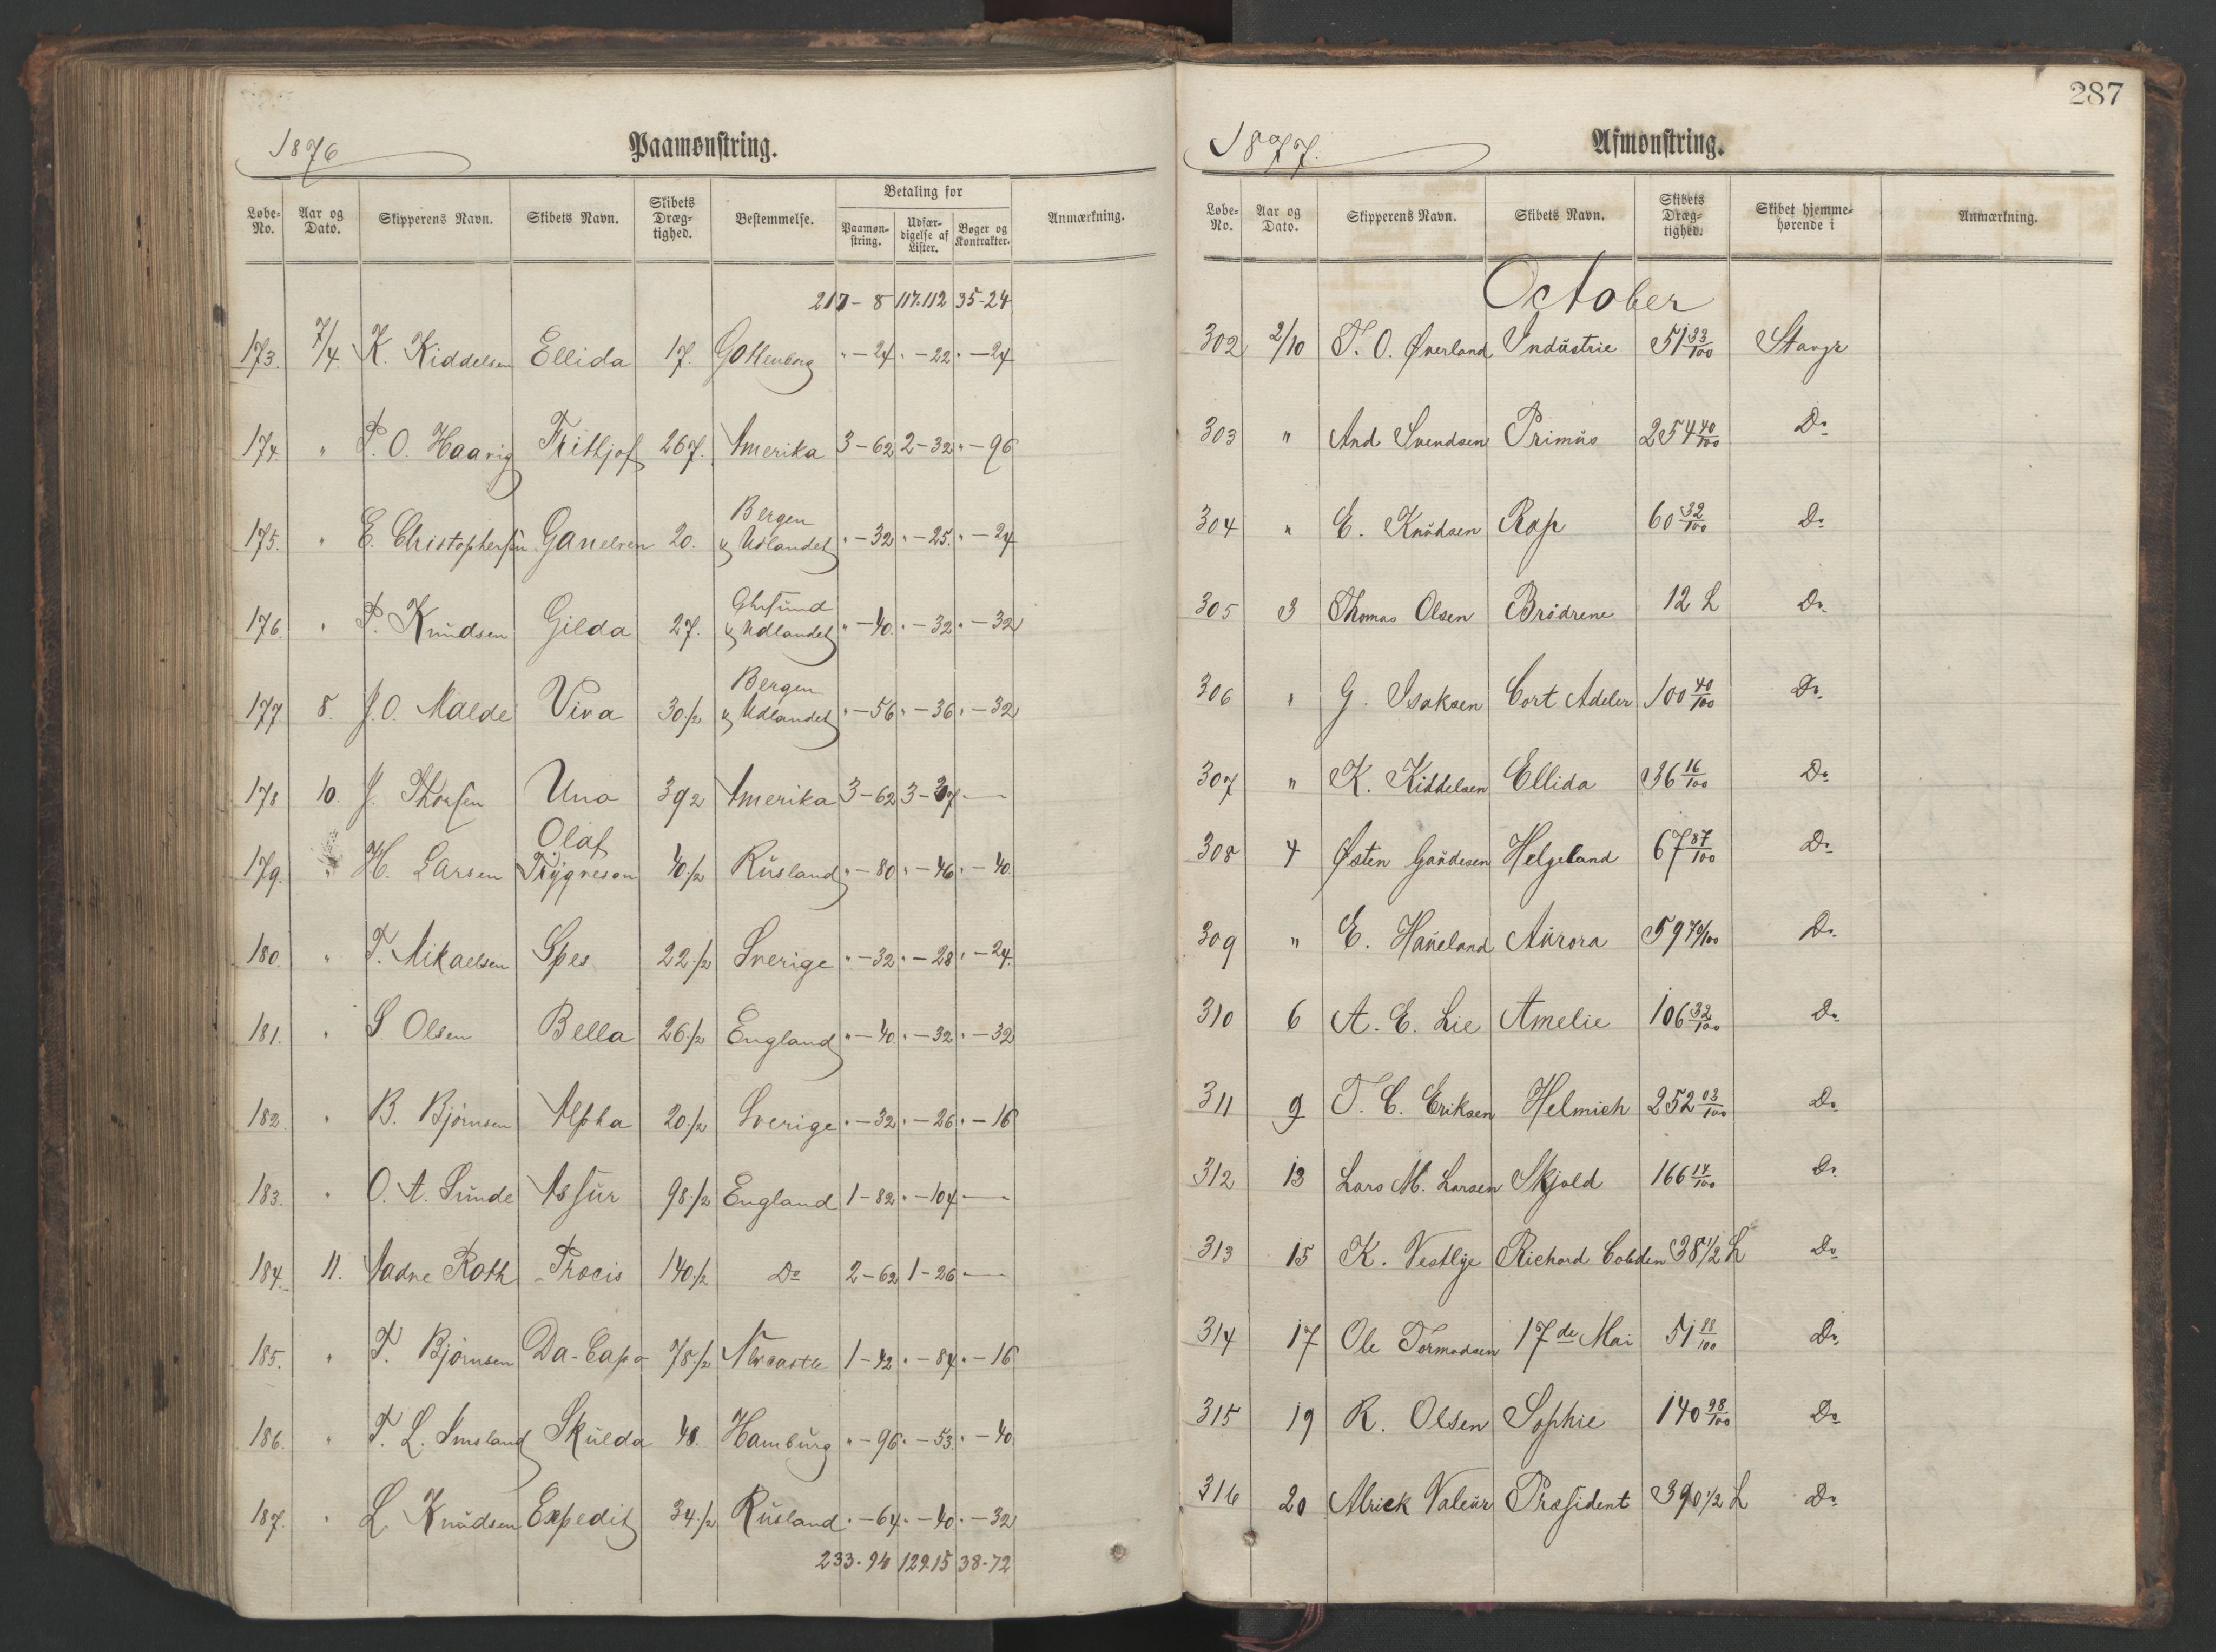 1876 Paamønstring.
Løbe-No. Aar og Dato. Skipperens Navn. Skibets Navn. Skibets Dræg-tighed. Bestemmelse. Betaling for Paamøn-string. Udfær-digelse af Lister. Bøger og Kontrakter. Anmærkning.
217-8 117.112 35-24
173. 7/4. K. Kiddelsen Ellida 17. Gottenborg " - 24 " - 22 " - 24
174. " P. O. Haavig Frithjof 267. Amerika 3-62 2-32 " - 96
Bergen
175. " E. Christophersen 20. & Udlandet " - 32 " - 25. " - 24
176. " P. Knudsen Gilda 27. & Udlandet " - 40. " - 32 " - 32
Bergen
177 8. J. O. Malde Viva 30 1/2 & Udlandet " - 56 " - 36 " - 32
178 10. J. Thorsen Una 392 Amerika 3-62 3-37 —
Olaf
179. " H. Larsen Trygveson 40 1/2 Rusland " - 80 " - 46 " - 40.
180. " T. Mikaelsen Spes 22 1/2 Sverige " - 32 " - 28 " - 24.
181. " S. Olsen Bella 26 1/2 England " - 40. " - 32 " - 32
182. " B. Bjørnsen Alpha 20 1/2 Sverige " - 32 " - 26 " - 16
183. " O. A. Sunde Assur 98 1/2 England 1-82 " - 104 —
184. 11. Aadne Roth Procis 140 1/2 Do 2-62 1-26 —
185. " T. Bjørnsen Da-Capo 78 1/2 Newcastle 1-42 " - 84 " - 16
186. " T. L. Imsland Skulda 48. Hamburg " - 96 " - 53. " - 40
187. " L. Knudsen Expedit 34 1/2 Rusland " - 64 " - 40 " - 32
233-94 129.15 38-72
287
1877. Afmønstring.
Løbe-No. Aar og Dato. Skipperens Navn. Skibets Navn. Skibets Dræg-tighed. Skibet hjemme-hørende i Anmærkning.
October
302 2/10 T. O. Øverland Industrie 51 33/100 Stavgr
303 " And Svendsen Primus 254 40/100 Do
304 " E. Knudsen Rap 60 32/100 Do
305 3 Thomas Olsen Brødrene 12 L Do
306 " G. Isaksen Cort Adeler 100 40/100 Do
307 " K. Kiddelsen Ellida 36 16/100 Do
308 4 Østen Gaudesen Helgeland 67 87/100 Do
309 " E. Haueland Aurora 59 79/100 Do
310 6 A. E. Lie Amelie 106 32/100 Do
311 9 T. C. Eriksen Helmich 252 03/100 Do
312 13 Lars M. Larsen Skjold 166 14/100 Do
313 15 K. Vestlye Richard Cobden 38 1/2 L Do
314 17 Ole Tormodsen 17de Mai 51 88/100 Do
315 19 R. Olsen Sophie 140 98/100 Do
316 20 Alrick Valeur Præsident 390 1/2 L Do